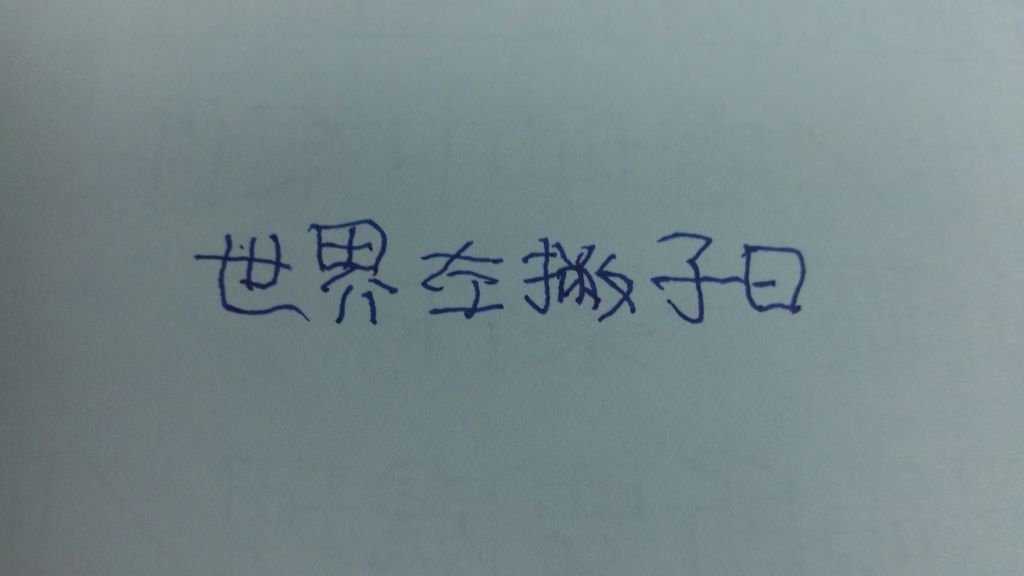 世界左子日